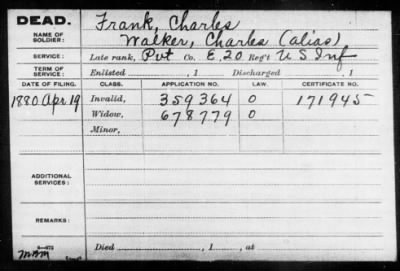 DEAD.
Frank, Charles
NAME OF SOLDIER:
Walker, Charles (alias)
SERVICE: Late rank, Pvt Co. E, 20 Reg't U S Inf
TERM OF SERVICE: Enlisted , 1 Discharged , 1
DATE OF FILING. CLASS. APPLICATION NO. LAW. CERTIFICATE NO.
1880 Apr 19 Invalid, 359364 O 171945
Widow, 678779 O
Minor,
ADDITIONAL SERVICES:
REMARKS:
Died , 1 , at